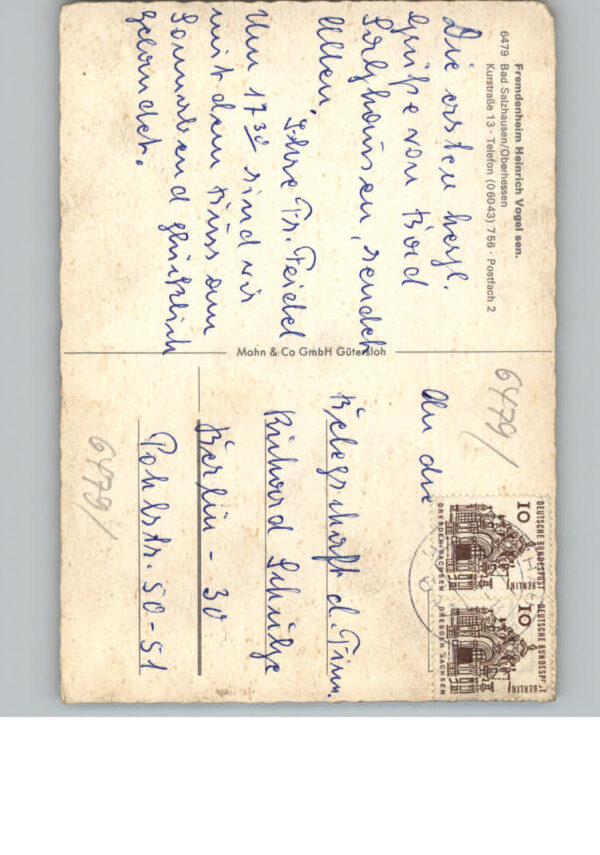 Fremdenheim Heinrich Vogel sen.
6479 Bad Salzhausen/Oberhessen
Kurstraße 13 · Telefon (06043) 756 · Postfach 2
Die ersten herzl.
Grüße von Bad
Salzhausen, sendet
Allen,
Ihre Fr. Feidel
Um 17 30 sind wir
mit dem Bus am
Sonnabend glücklich
gelandet.
Mohn & Co GmbH Gütersloh
6479/
An die
Belegschaft d. Firm.
Richard Schulze
Berlin - 30
Pohlstr. 50-51
6479/
DEUTSCHE BUNDESPOST
BERLIN
10
DRESDEN-SACHSEN
DEUTSCHE BUNDESPOST
BERLIN
10
DRESDEN-SACHSEN